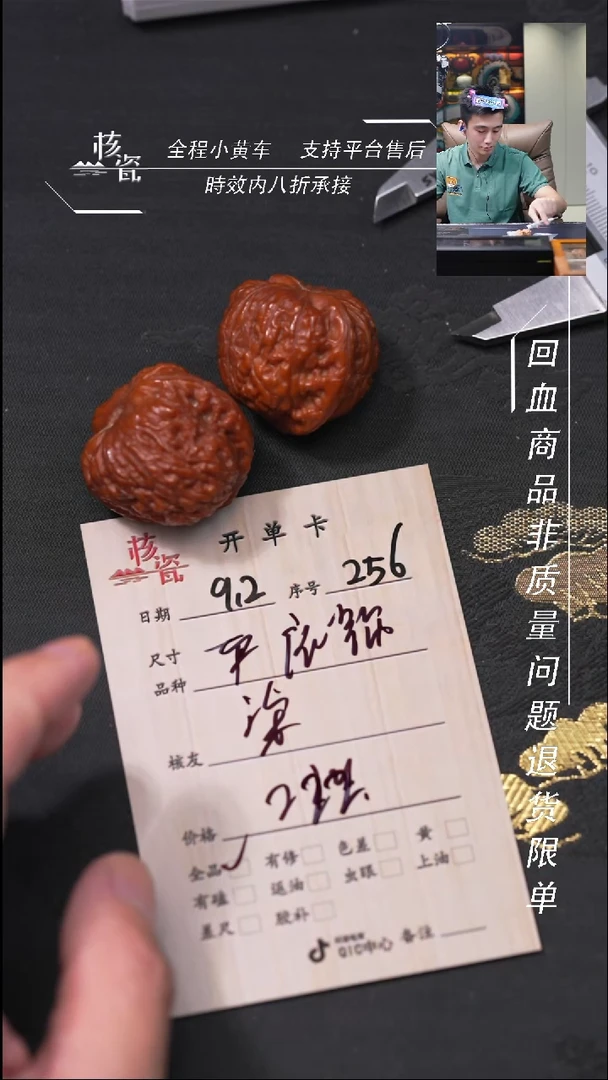 核瓷
全程小黄车 支持平台售后
時效内八折承接
回血商品非质量问题退货限单
核瓷
开单卡
日期 9.2 序号 256
尺寸
品种
核友
价格
全品 ✓ 有修 色差 黄
有磕 返油 虫眼 上油
差尺 胶补
QIC中心 备注